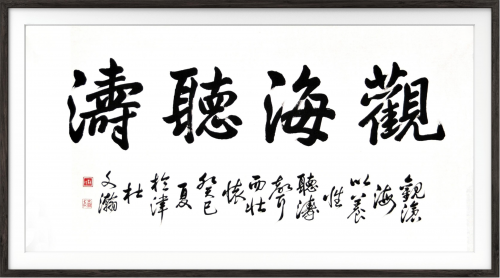 觀海聽濤
觀滄
海
以養
性
聽濤
而壯
懷
癸巳
夏
於津
杜
文瀚